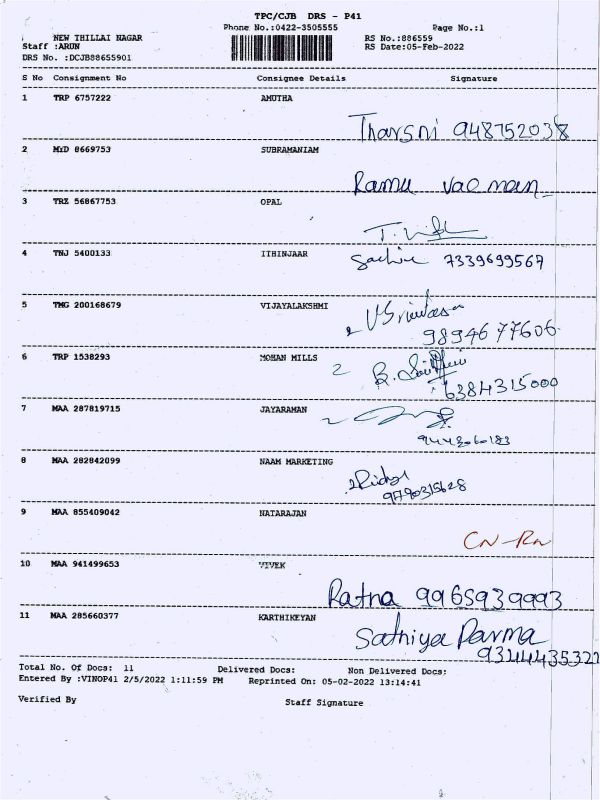 TPC/CJB DRS - P41
Phone No.:0422-3505555 Page No.:1
NEW THILLAI NAGAR RS No.:886559
Staff :ARUN RS Date:05-Feb-2022
DRS No. :DCJB88655901
S No Consignment No Consignee Details Signature
1 TRP 6757222 AMUTHA
Tharsni 948752038
2 MYD 8669753 SUBRAMANIAM
Ramu
3 TRZ 56867753 OPAL
4 TNJ 5400133 ITHINJAAR
7339699567
5 TMG 200168679 VIJAYALAKSHMI
9894677606
6 TRP 1538293 MOHAN MILLS
2 B.
6384315000
7 MAA 287819715 JAYARAMAN
8 MAA 282842099 NAAM MARKETING
9 MAA 855409042 NATARAJAN
10 MAA 941499653 VIVEK
Ratna 9965939993
11 MAA 285660377 KARTHIKEYAN
Sathiya
Total No. Of Docs: 11 Delivered Docs: Non Delivered Docs:
Entered By :VINOP41 2/5/2022 1:11:59 PM Reprinted On: 05-02-2022 13:14:41
Verified By Staff Signature